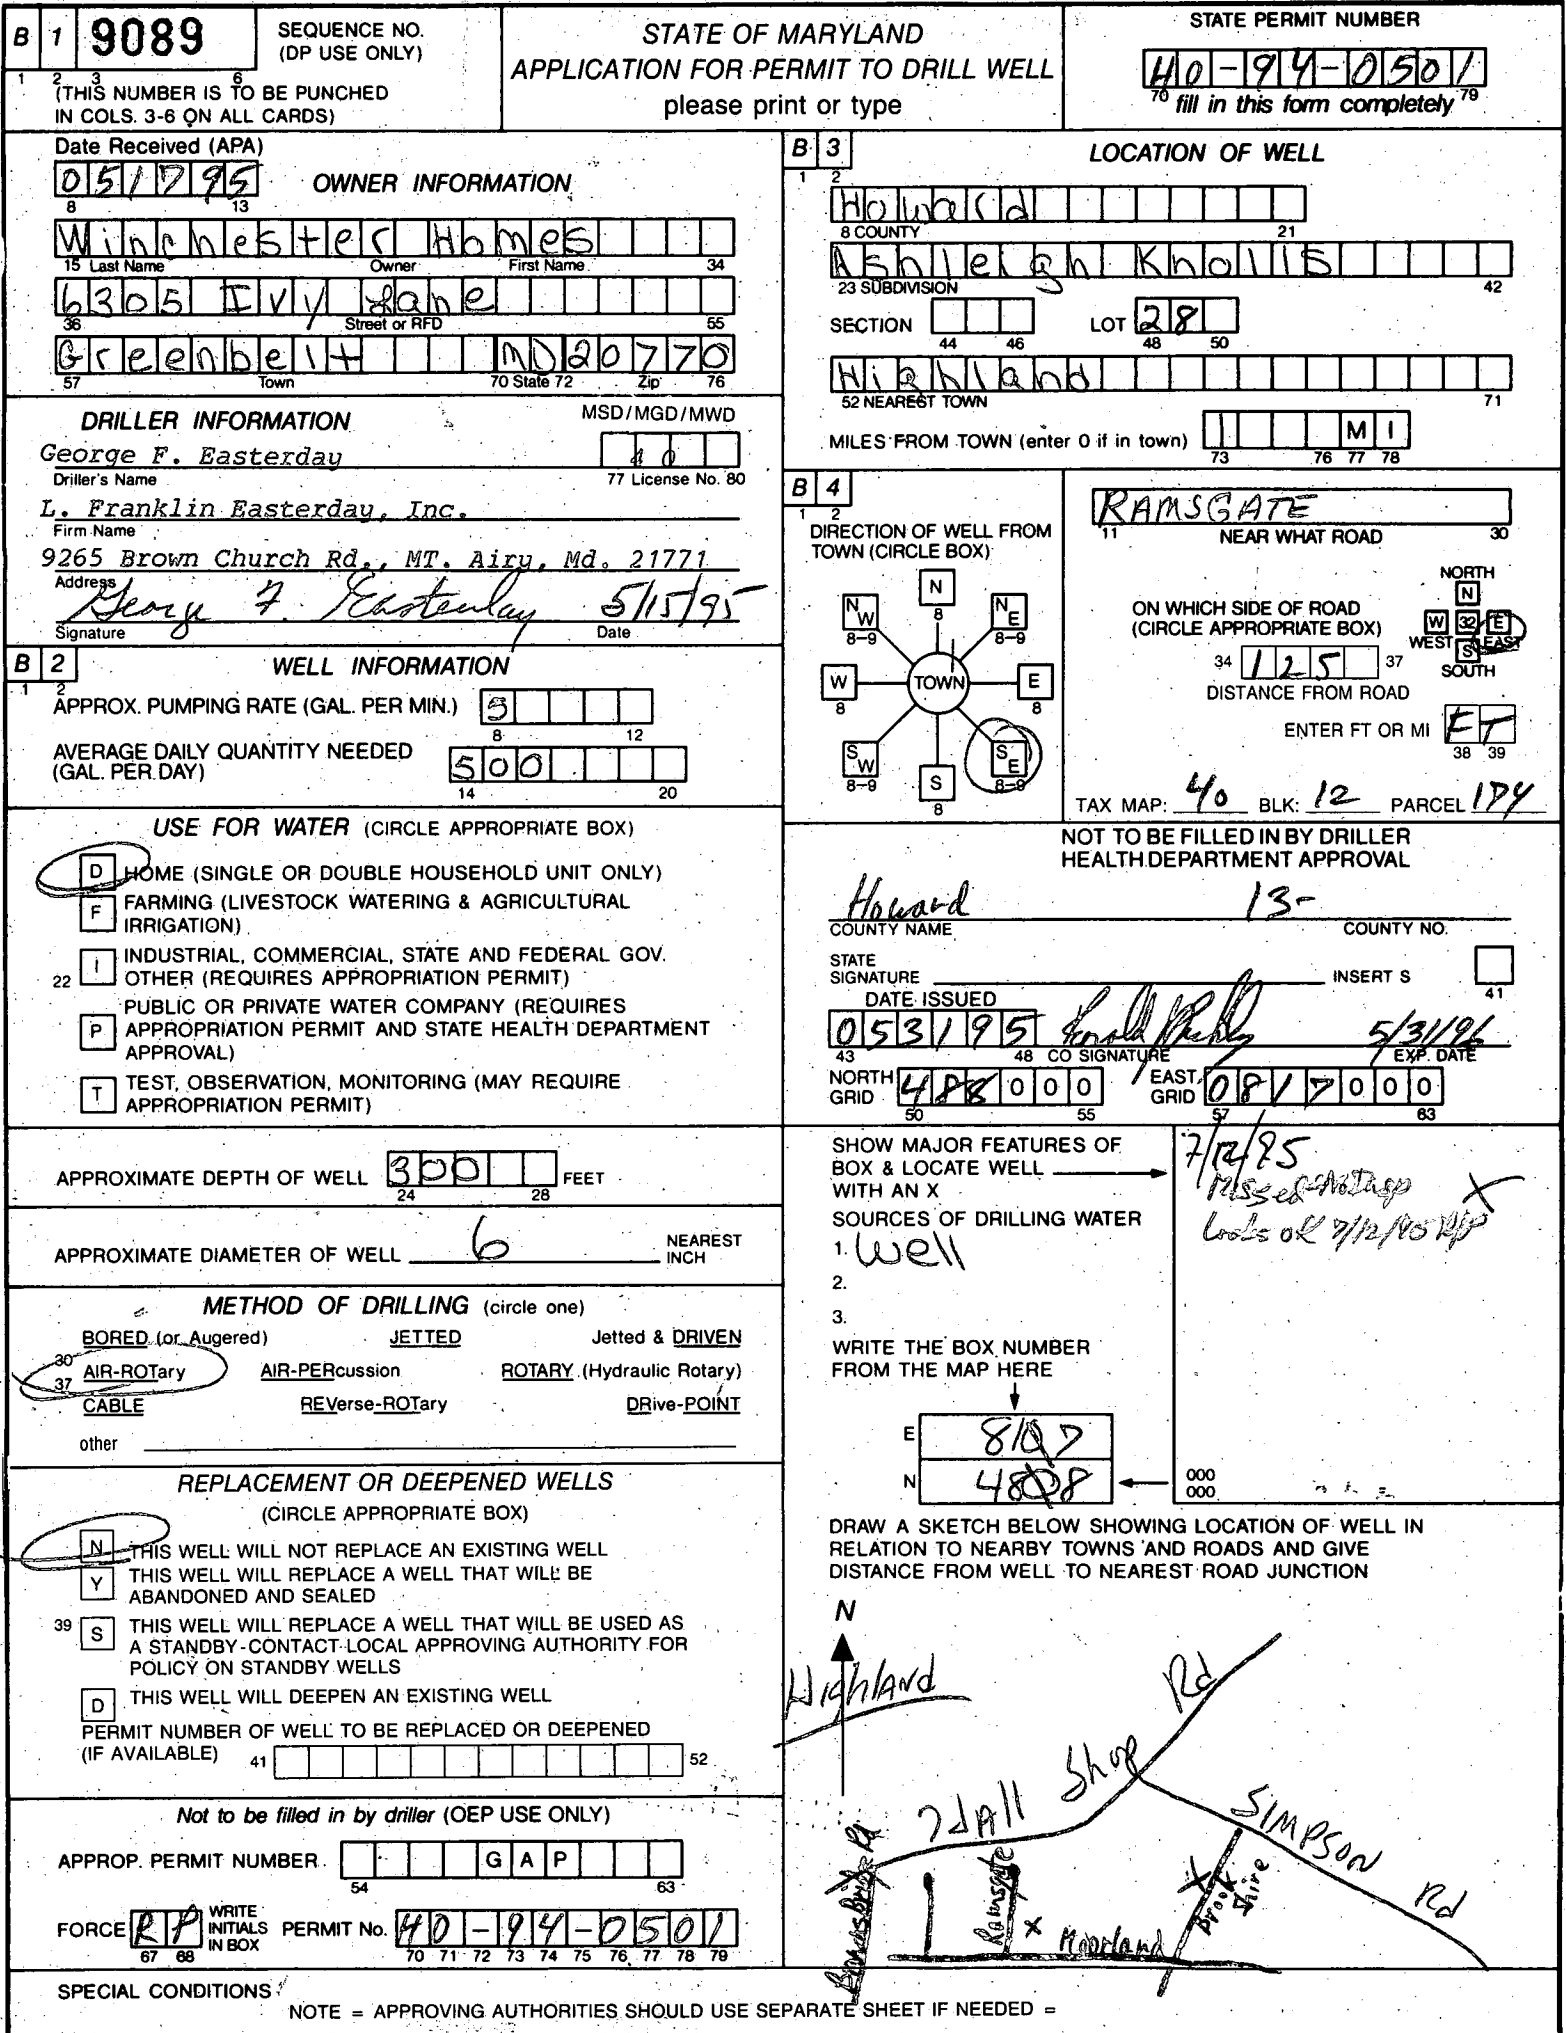 B 1 9089 SEQUENCE NO. (DP USE ONLY)
1 2 3 6
(THIS NUMBER IS TO BE PUNCHED
IN COLS. 3-6 ON ALL CARDS)
STATE OF MARYLAND
APPLICATION FOR PERMIT TO DRILL WELL
please print or type
STATE PERMIT NUMBER
HO-94-0501
70 fill in this form completely 79
Date Received (APA)
051795 OWNER INFORMATION
8 13
Winchester Homes
15 Last Name Owner First Name 34
6305 Ivy Lane
36 Street or RFD 55
Greenbelt MD 20770
57 Town 70 State 72 Zip 76
DRILLER INFORMATION MSD/MGD/MWD
George F. Easterday 40
Driller's Name 77 License No. 80
L. Franklin Easterday, Inc.
Firm Name
9265 Brown Church Rd., MT. Airy, Md. 21771
Address
George F. Easterday 5/15/95
Signature Date
B 2 WELL INFORMATION
1 2
APPROX. PUMPING RATE (GAL. PER MIN.) 5
8 12
AVERAGE DAILY QUANTITY NEEDED
(GAL. PER DAY) 500
14 20
USE FOR WATER (CIRCLE APPROPRIATE BOX)
D HOME (SINGLE OR DOUBLE HOUSEHOLD UNIT ONLY)
F FARMING (LIVESTOCK WATERING & AGRICULTURAL
IRRIGATION)
22 I INDUSTRIAL, COMMERCIAL, STATE AND FEDERAL GOV.
OTHER (REQUIRES APPROPRIATION PERMIT)
P PUBLIC OR PRIVATE WATER COMPANY (REQUIRES
APPROPRIATION PERMIT AND STATE HEALTH DEPARTMENT
APPROVAL)
T TEST, OBSERVATION, MONITORING (MAY REQUIRE
APPROPRIATION PERMIT)
APPROXIMATE DEPTH OF WELL 300 FEET
24 28
APPROXIMATE DIAMETER OF WELL 6 NEAREST
INCH
METHOD OF DRILLING (circle one)
BORED (or Augered) JETTED Jetted & DRIVEN
30 AIR-ROTary AIR-PERcussion ROTARY (Hydraulic Rotary)
37
CABLE REVerse-ROTary DRive-POINT
other
REPLACEMENT OR DEEPENED WELLS
(CIRCLE APPROPRIATE BOX)
N THIS WELL WILL NOT REPLACE AN EXISTING WELL
Y THIS WELL WILL REPLACE A WELL THAT WILL BE
ABANDONED AND SEALED
39 S THIS WELL WILL REPLACE A WELL THAT WILL BE USED AS
A STANDBY-CONTACT LOCAL APPROVING AUTHORITY FOR
POLICY ON STANDBY WELLS
D THIS WELL WILL DEEPEN AN EXISTING WELL
PERMIT NUMBER OF WELL TO BE REPLACED OR DEEPENED
(IF AVAILABLE) 41 52
Not to be filled in by driller (OEP USE ONLY)
APPROP. PERMIT NUMBER GAP
54 63
FORCE RP WRITE INITIALS IN BOX PERMIT No. HO-94-0501
67 68 70 71 72 73 74 75 76 77 78 79
B 3 LOCATION OF WELL
1 2
Howard
8 COUNTY 21
Ashleigh Knolls
23 SUBDIVISION 42
SECTION LOT 28
44 46 48 50
Highland
52 NEAREST TOWN 71
MILES FROM TOWN (enter 0 if in town) 1 MI
73 76 77 78
B 4
1 2
DIRECTION OF WELL FROM
TOWN (CIRCLE BOX)
N
8
NW NE
8-9 8-9
W TOWN E
8 8
SW SE
8-9 8-9
S
8
RAMSGATE
11 NEAR WHAT ROAD 30
ON WHICH SIDE OF ROAD
(CIRCLE APPROPRIATE BOX)
NORTH
N
W 32 E
WEST EAST
S
SOUTH
34 125 37
DISTANCE FROM ROAD
ENTER FT OR MI FT
38 39
TAX MAP: 40 BLK: 12 PARCEL
NOT TO BE FILLED IN BY DRILLER
HEALTH DEPARTMENT APPROVAL
Howard 13-
COUNTY NAME COUNTY NO.
STATE
SIGNATURE INSERT S
41
DATE ISSUED
053195 5/31/96
43 48 CO SIGNATURE EXP. DATE
NORTH GRID 488000 EAST GRID 0817000
50 55 57 63
SHOW MAJOR FEATURES OF
BOX & LOCATE WELL
WITH AN X
SOURCES OF DRILLING WATER
1. Well
2.
3.
7/12/95
Missed
X
Looks ok 7/12/95
WRITE THE BOX NUMBER
FROM THE MAP HERE
E 8107
N 4808
000
000
DRAW A SKETCH BELOW SHOWING LOCATION OF WELL IN
RELATION TO NEARBY TOWNS AND ROADS AND GIVE
DISTANCE FROM WELL TO NEAREST ROAD JUNCTION
N
Highland
Shop Rd
SIMPSON Rd
Ramsgate
X
Moorland
X
Brook Shire
SPECIAL CONDITIONS
NOTE = APPROVING AUTHORITIES SHOULD USE SEPARATE SHEET IF NEEDED =